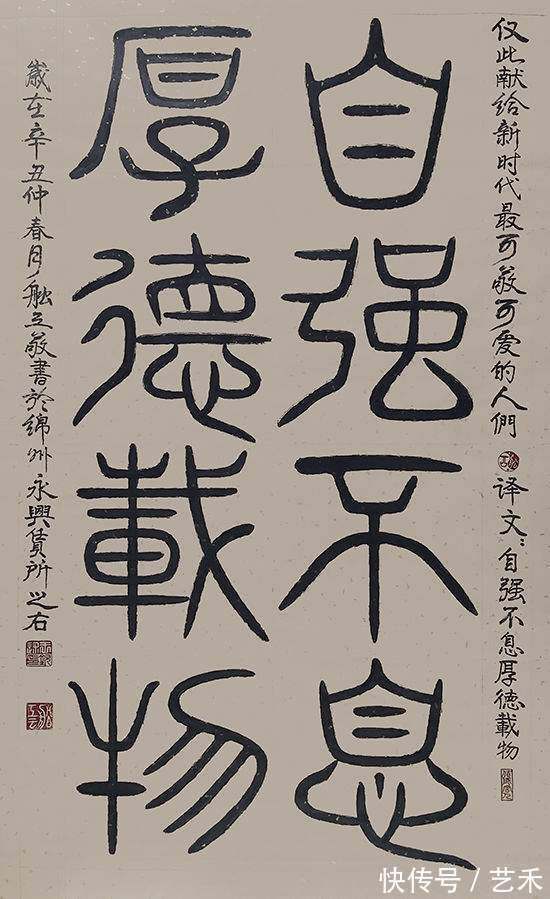 仅此献给新时代最可敬可爱的人們
译文：自强不息厚德載物
自强不息
厚德載物
歲在辛丑仲春月舩之敬書於綿州永興賃所之右
快传号 / 艺禾